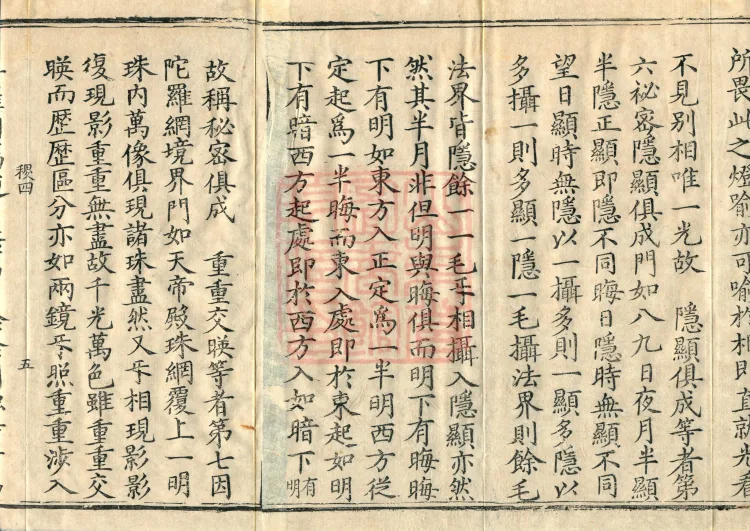 所畏此之燈喻亦可喻於相即直就光看
不見別相唯一光故　隱顯俱成等者第
六祕密隱顯俱成門如八九日夜月半顯
半隱正顯即隱不同晦日隱時無顯不同
望日顯時無隱以一攝多則一顯多隱以
多攝一則多顯一隱一毛攝法界則餘毛
法界皆隱餘一一毛㸦相攝入隱顯亦然
然其半月非但明與晦俱而明下有晦晦
下有明如東方入正定為一半明西方從
定起為一半晦而東入處即於東起如明
下有暗西方起處即於西方入如暗下有明
故稱祕密俱成　重重交暎等者第七因
陀羅網境界門如天帝殿珠網覆上一明
珠內萬像俱現諸珠盡然又㸦相現影影
復現影重重無盡故千光萬色雖重重交
暎而歷歷區分亦如兩鏡㸦照重重涉入
稷四　五